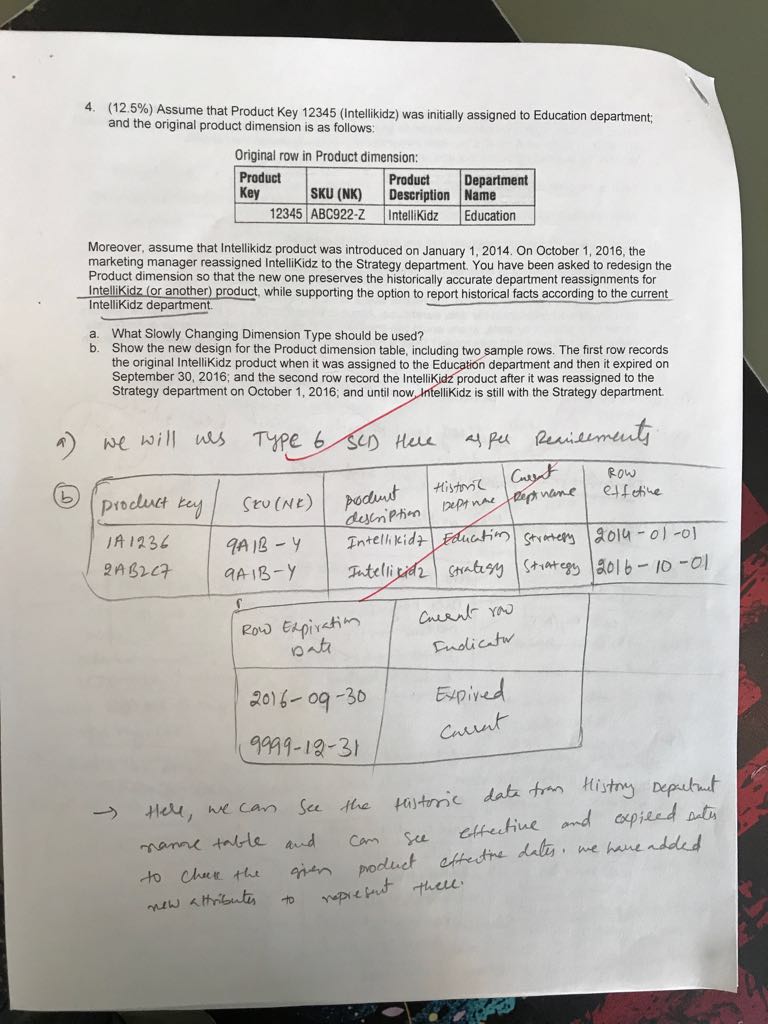 4. (12.5%) Assume that Product Key 12345 (Intellikidz) was initially assigned to Education department;
and the original product dimension is as follows:
Original row in Product dimension:
Product Key SKU (NK) Product Description Department Name
12345 ABC922-Z IntelliKidz Education
Moreover, assume that Intellikidz product was introduced on January 1, 2014. On October 1, 2016, the
marketing manager reassigned IntelliKidz to the Strategy department. You have been asked to redesign the
Product dimension so that the new one preserves the historically accurate department reassignments for
IntelliKidz (or another) product, while supporting the option to report historical facts according to the current
IntelliKidz department.
a. What Slowly Changing Dimension Type should be used?
b. Show the new design for the Product dimension table, including two sample rows. The first row records
the original IntelliKidz product when it was assigned to the Education department and then it expired on
September 30, 2016; and the second row record the IntelliKidz product after it was reassigned to the
Strategy department on October 1, 2016; and until now, IntelliKidz is still with the Strategy department.
a) we will TYPE 6 SCD Here as per
b product key SKU (NK) product description Historic Dept name Current Dept name Row effctive
1A1236 9A1B-Y Intellikidz Education Strategy 2014-01-01
2AB2C7 9A1B-Y Intellikidz Strategy Strategy 2016-10-01
Row Expiration Date Current row Indicator
2016-09-30 Expired
9999-12-31 Current
→ Here, we can see the Historic data History Department
table and can see effective and expired dates
to check the given product effective dates. we have added
new attributes to represent these.